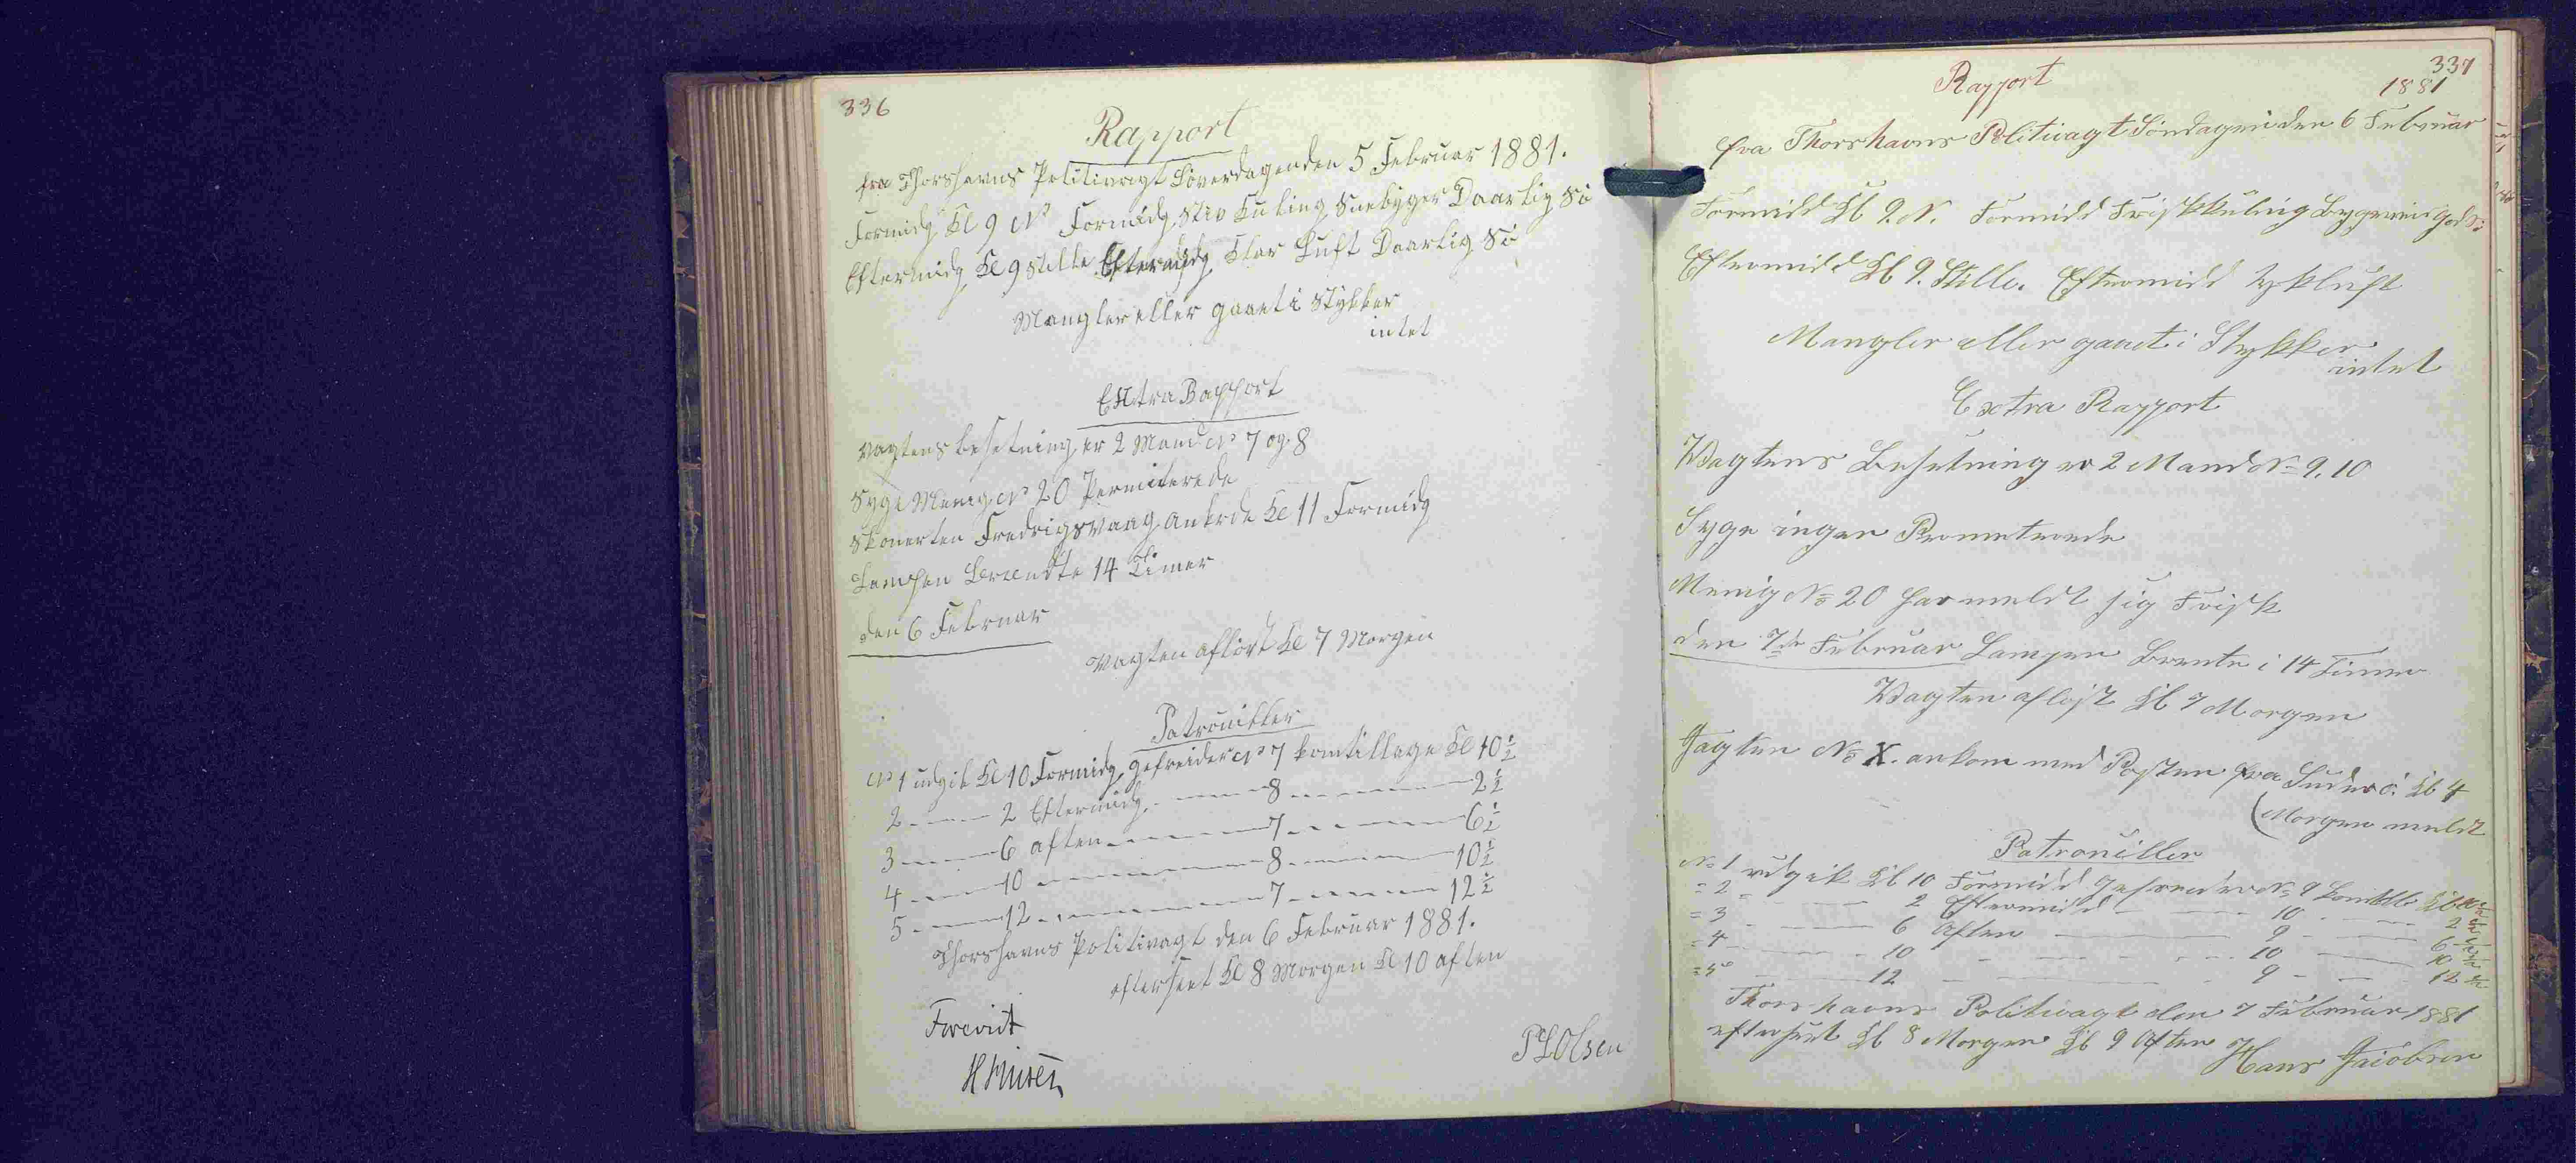 336
Rapport
fra Thorshavns Politivagt Löverdagen den 5 Februar 1881.
Formidg Kl 9 No Formidg, stiv Kuling, Snebyger Daarlig Sö
Eftermidg Kl 9 stille Eftermidg Klar Luft Daarlig Sö
Mangler eller gaaet i Stykker
intet
Extra Rapport
Vagtens besetning er 2 Mand No 7 og 8
Syge Menig No 20 Permiterede
Skonerten Fredrigsvaag Ankrde Kl 11 Formidg
Lampen Brændte 14 Timer
den 6 Februar
Vagten aflöst Kl 7 Morgen
Patrouiller
No 1 udgik Kl 10 Formidg, gefreider No 7 kom tillage Kl 10 1/2
2 — 2 Eftermidg. — 8 — 2 1/2
3 — 6 aften — 7 — 6 1/2
4 — 10 — 8 — 10 1/2
5 — 12 — 7 — 12 1/2
Thorshavns Politivagt den 6 Februar 1881.
efterseet Kl 8 Morgen Kl 10 aften
Forevist
P L Olsen
337
Rapport
1881
fra Thorshavns Politivagt Söndagen den 6 Februar
Formidd Kl 9. N. Formidd Frisk kuling Bygeveir god Sö
Eftromidd Kl 9. Stille. Eftromidd tykluft
Mangler eller gaaet i Stykker
intet
Extra Rapport
Wagtens Besetning er 2 Mand No 9. 10
Syge ingen Prometrede
Menig No 20 har meldt sig Frisk
den 7de Februar Lampen Brente i 14 Timer
Wagten aflöst Kl 7 Morgen
Jagten No X. ankom med Posten fra Suderö. Kl 4
(Morgen meldt
Patrouiller
No 1 udgik Kl 10 Formidd Gefreider No 9 Kl 10 1/2
= 2 — 2 Eftromidd — 10 — 2 1/2
= 3 — 6 Aften — 9 — 6 1/2
= 4 — 10 — 10 — 10 1/2
= 5 — 12 — 9 — 12 1/2
Thorshavns Politivagt den 7 Februar 1881
efterseet Kl 8 Morgen Kl 9 Aften
Hans Jacobsen